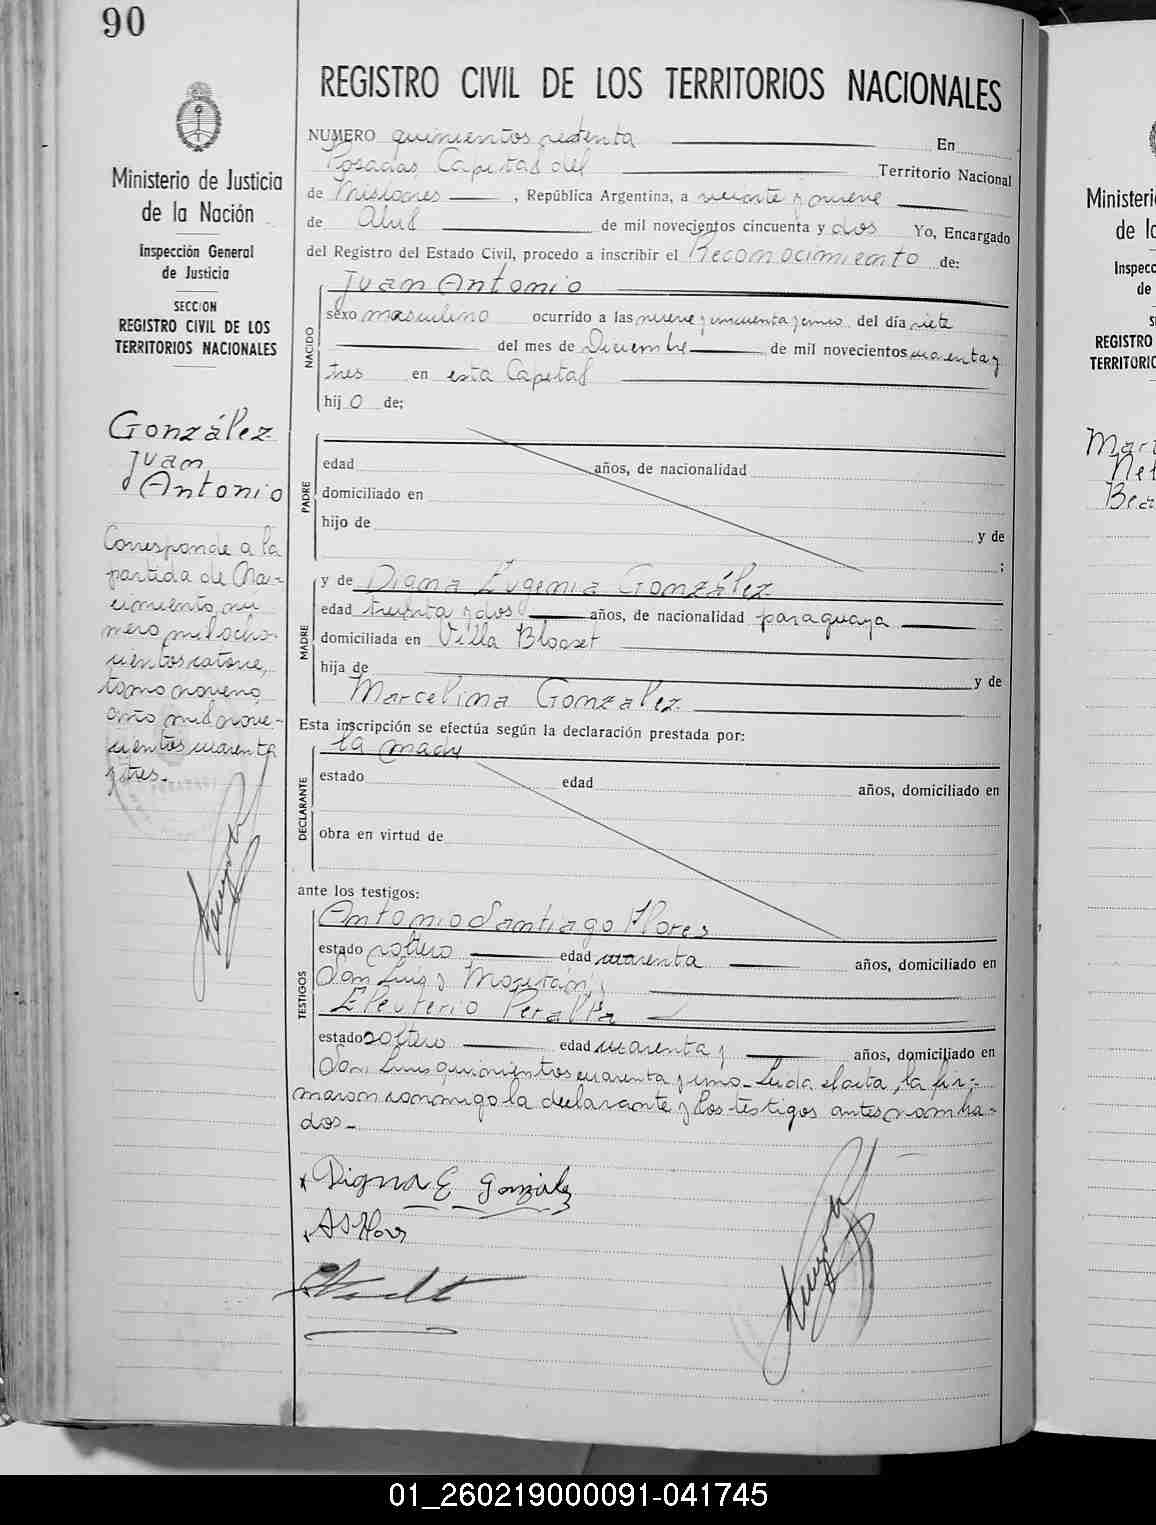 90
REGISTRO CIVIL DE LOS TERRITORIOS NACIONALES
Ministerio de Justicia
de la Nación
Inspección General
de Justicia
SECCION
REGISTRO CIVIL DE LOS
TERRITORIOS NACIONALES
González
Juan
Antonio
Corresponde a la
partida de Na-
cimiento, nú
mero mil ocho-
cientos catorce,
tomo noveno,
año mil nove-
cientos cuarenta
y tres.-
NUMERO quinientos setenta En
Posadas, Capital del Territorio Nacional
de Misiones, República Argentina, a veinte y nueve
de Abril de mil novecientos cincuenta y dos Yo, Encargado
del Registro del Estado Civil, procedo a inscribir el Reconocimiento de:
NACIDO
Juan Antonio
sexo masculino ocurrido a las nueve y cincuenta y cinco del día siete
del mes de Diciembre de mil novecientos cuarenta y
tres en esta Capital
hijo de;
PADRE
edad años, de nacionalidad
domiciliado en
hijo de
y de
;
MADRE
y de Digna Eugenia González
edad treinta y dos años, de nacionalidad paraguaya
domiciliada en Villa Blosset
hija de
y de
Marcelina González
Esta inscripción se efectúa según la declaración prestada por:
DECLARANTE
la madre
estado edad años, domiciliado en
obra en virtud de
ante los testigos:
TESTIGOS
Antonio Santiago Flores
estado soltero edad cuarenta años, domiciliado en
San Luis y
Eleuterio Peralta
estado soltero edad cuarenta y años, domiciliado en
San Luis quinientos cuarenta y uno.- Leida el acta, la fir-
maron conmigo la declarante y los testigos antes nombra-
dos.-
Digna E González
AS Flores
Ministerio
de la
Inspecc
de
S
REGISTRO
TERRITORIO
01_260219000091-041745